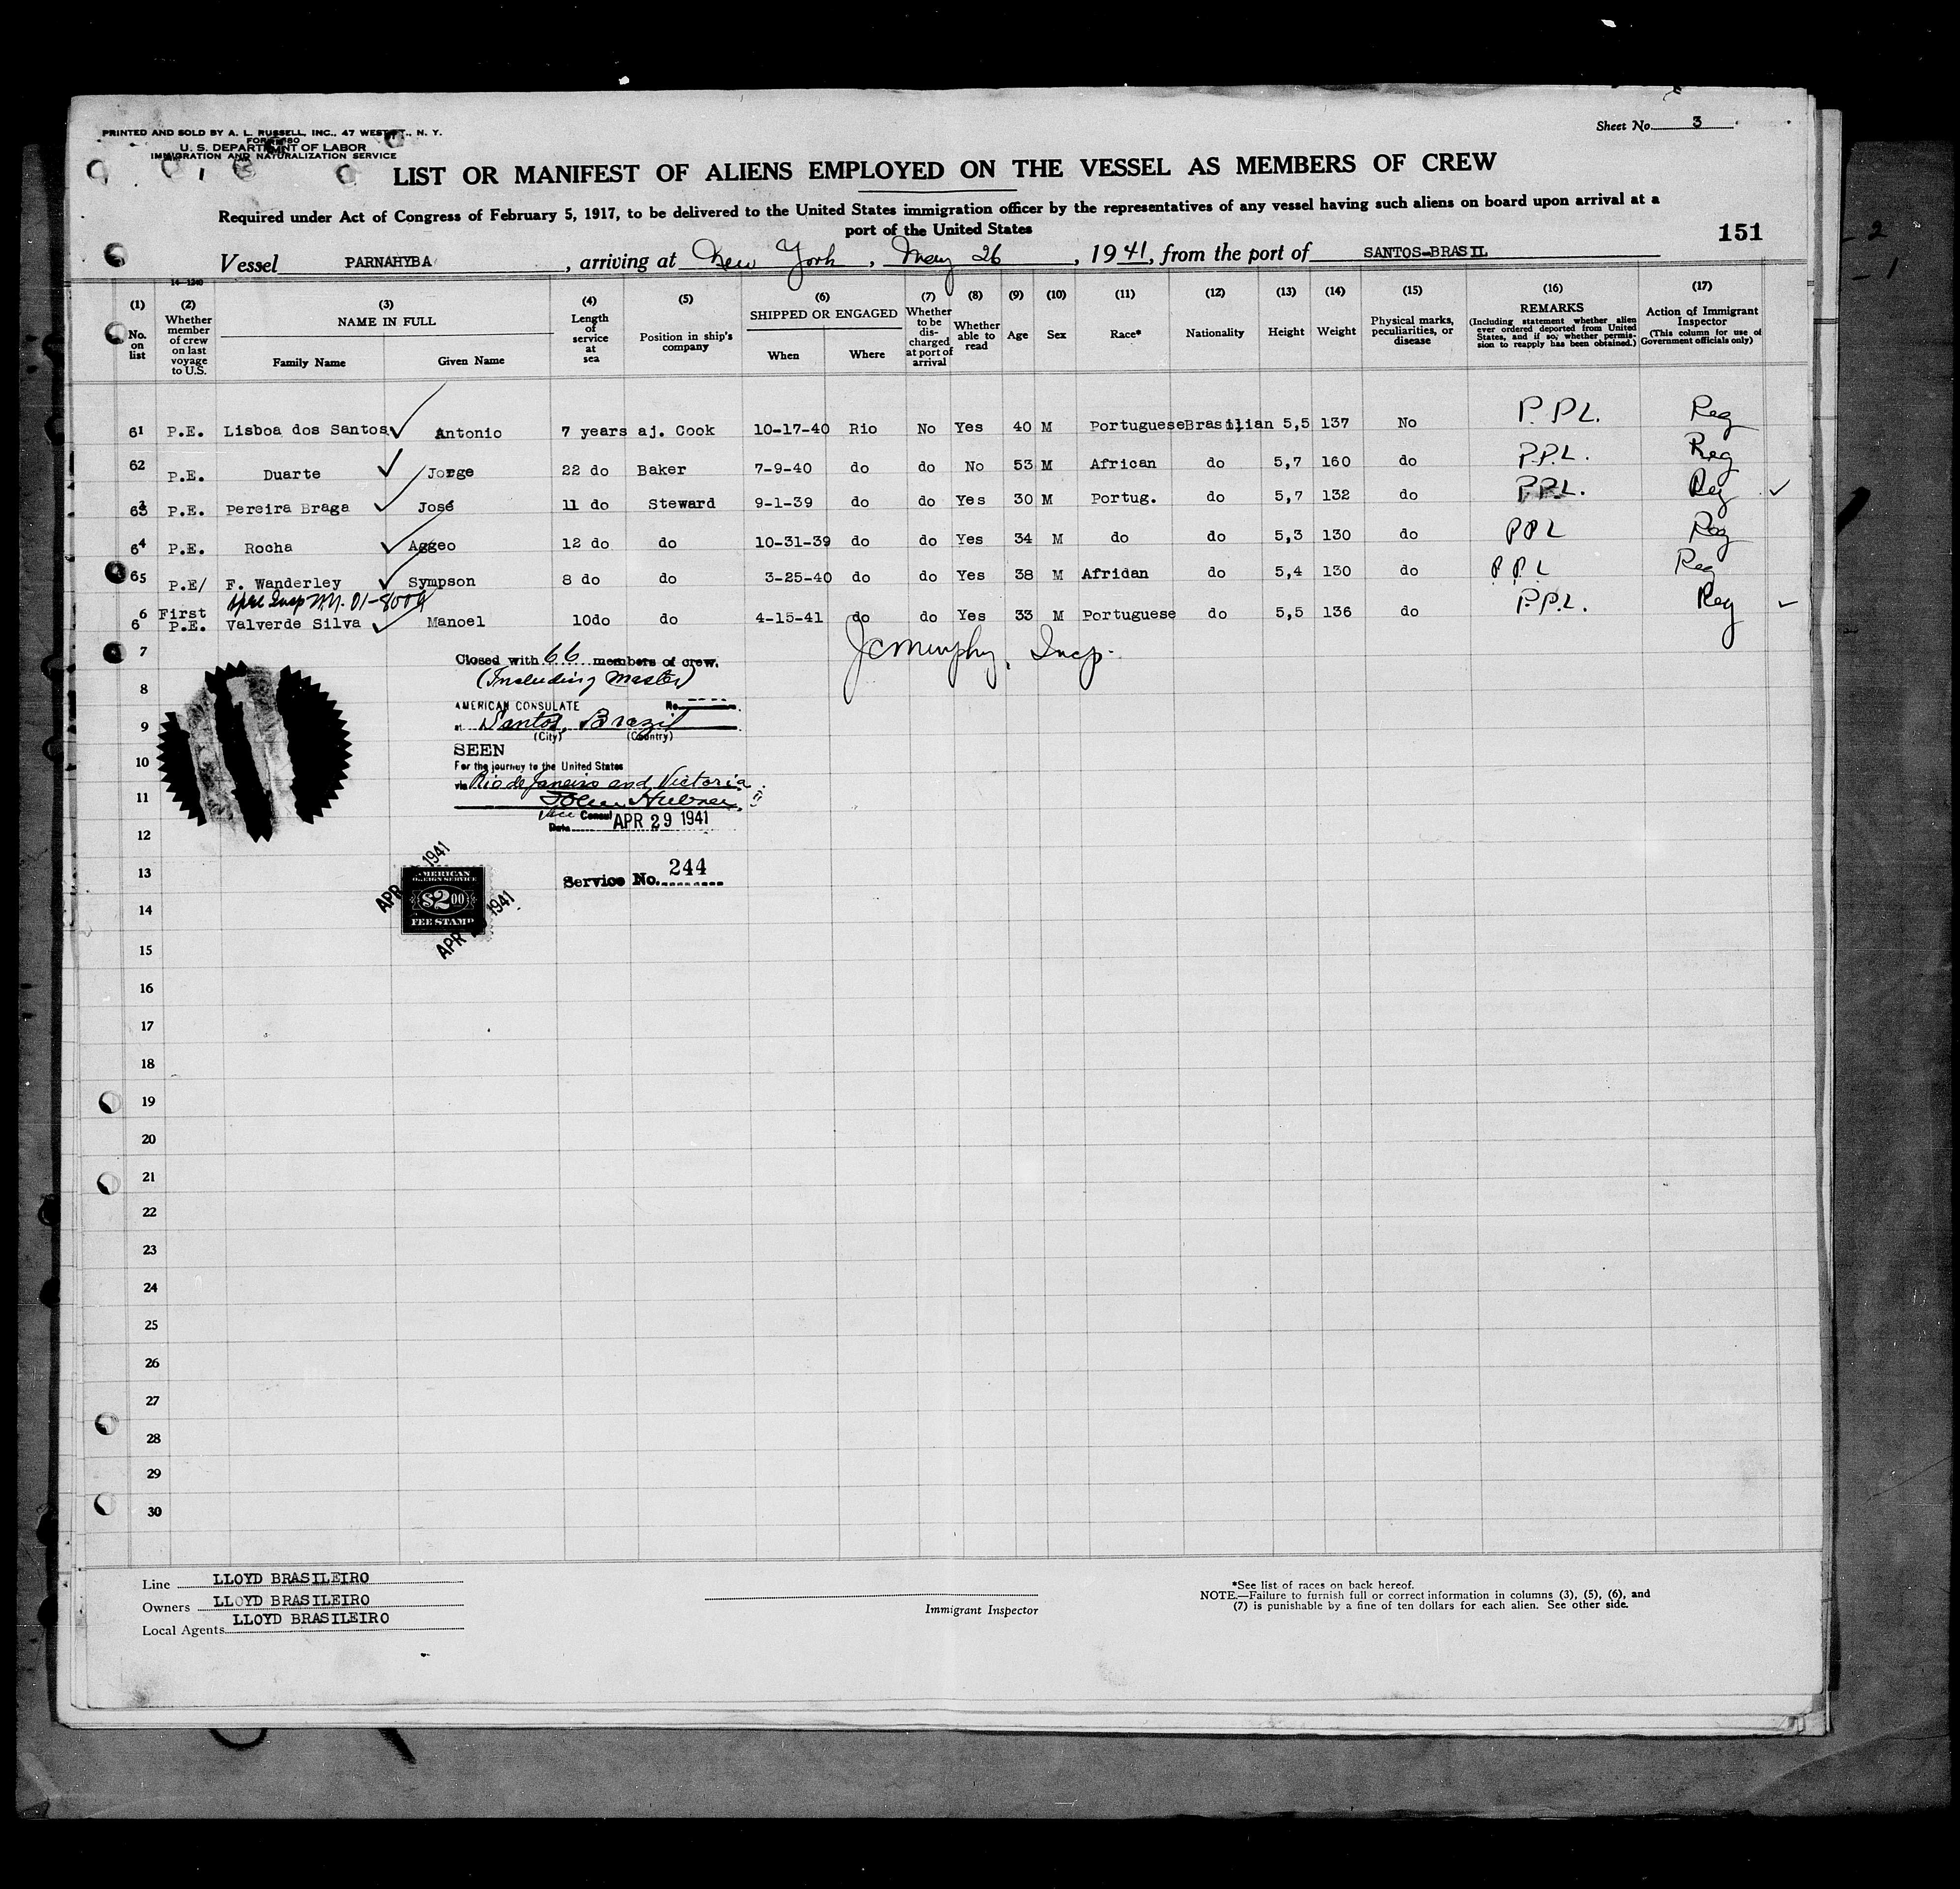 PRINTED AND SOLD BY A. L. RUSSELL, INC., 47 WEST ST., N. Y.
U. S. DEPARTMENT OF LABOR
IMMIGRATION AND NATURALIZATION SERVICE
Sheet No. 3
LIST OR MANIFEST OF ALIENS EMPLOYED ON THE VESSEL AS MEMBERS OF CREW
Required under Act of Congress of February 5, 1917, to be delivered to the United States immigration officer by the representatives of any vessel having such aliens on board upon arrival at a
port of the United States
151
Vessel PARNAHYBA, arriving at New York, May 26, 1941, from the port of SANTOS-BRASIL
14-1240
(1) No. on list
(2) Whether member of crew on last voyage to U.S.
(3) NAME IN FULL
Family Name
Given Name
(4) Length of service at sea
(5) Position in ship's company
(6) SHIPPED OR ENGAGED
When
Where
(7) Whether to be discharged at port of arrival
(8) Whether able to read
(9) Age
(10) Sex
(11) Race*
(12) Nationality
(13) Height
(14) Weight
(15) Physical marks, peculiarities, or disease
(16) REMARKS
(Including statement whether alien ever ordered deported from United States, and if so, whether permission to reapply has been obtained.)
(17) Action of Immigrant Inspector
(This column for use of Government officials only)
61 P.E. Lisboa dos Santos Antonio 7 years aj. Cook 10-17-40 Rio No Yes 40 M Portuguese Brasilian 5,5 137 No P.P.L. Reg
62 P.E. Duarte Jorge 22 do Baker 7-9-40 do do No 53 M African do 5,7 160 do P.P.L. Reg
63 P.E. Pereira Braga José 11 do Steward 9-1-39 do do Yes 30 M Portug. do 5,7 132 do P.P.L. Reg
64 P.E. Rocha Aggeo 12 do do 10-31-39 do do Yes 34 M do do 5,3 130 do PPL Reg
65 P.E/ F. Wanderley Sympson 8 do do 3-25-40 do do Yes 38 M Afridan do 5,4 130 do P P L Reg
66 First P.E. Valverde Silva Manoel 10do do 4-15-41 do do Yes 33 M Portuguese do 5,5 136 do P.P.L. Reg
7
JC Murphy, Insp.
Closed with 66 members of crew.
(Including Master)
8
AMERICAN CONSULATE No.
9
at Santos, Brazil
(City) (Country)
SEEN
10
For the journey to the United States
via Rio de Janeiro and Victoria
11
Vice Consul
Date APR 29 1941
12
13
Service No. 244
APR 1941
AMERICAN
FOREIGN SERVICE
$2.00
FEE STAMP
APR 1941
14
15
16
17
18
19
20
21
22
23
24
25
26
27
28
29
30
Line LLOYD BRASILEIRO
Owners LLOYD BRASILEIRO
Local Agents LLOYD BRASILEIRO
Immigrant Inspector
*See list of races on back hereof.
NOTE.—Failure to furnish full or correct information in columns (3), (5), (6), and
(7) is punishable by a fine of ten dollars for each alien. See other side.